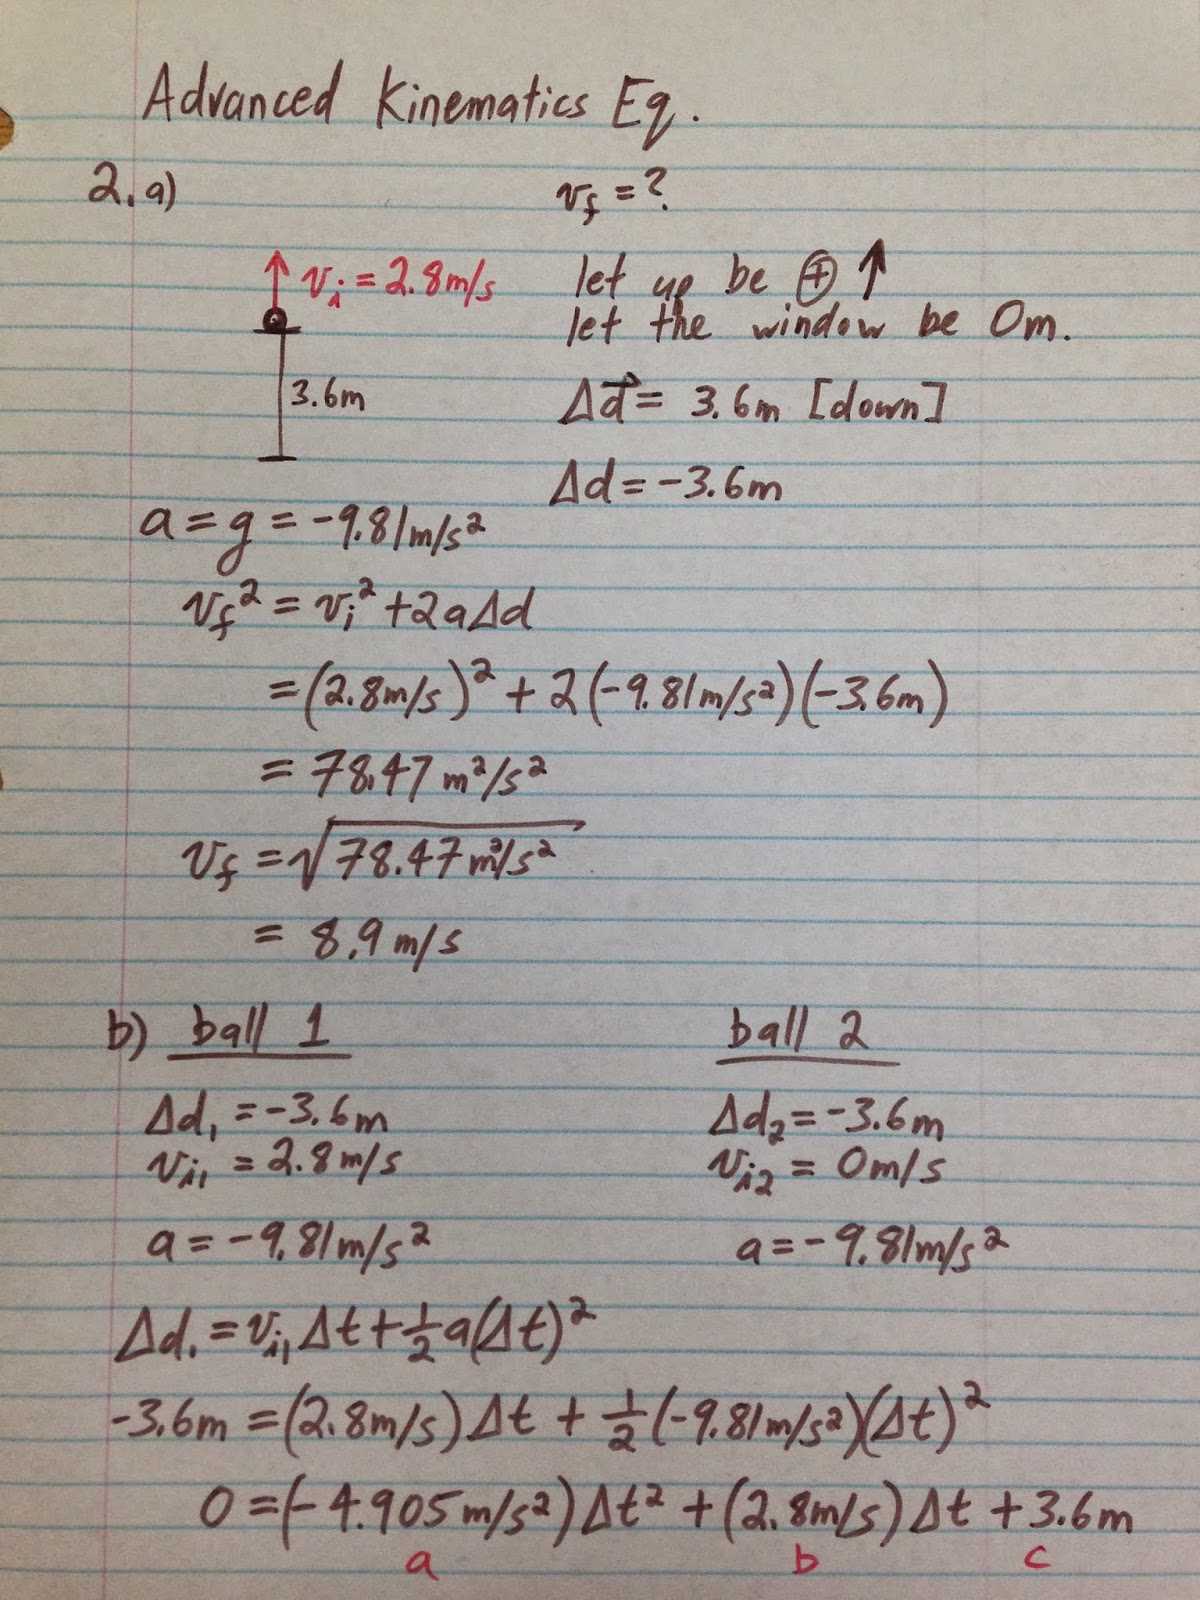 Advanced Kinematics Eq.
2. a)
v_f = ?
v_i = 2.8m/s
let up be ⊕ ↑
let the window be 0m.
3.6m
Δd⃗ = 3.6m [down]
Δd = -3.6m
a = g = -9.81m/s²
v_f² = v_i² + 2aΔd
= (2.8m/s)² + 2(-9.81m/s²)(-3.6m)
= 78.47 m²/s²
v_f = √78.47 m²/s²
= 8.9 m/s
b) ball 1
ball 2
Δd₁ = -3.6m
v_i1 = 2.8m/s
a = -9.81m/s²
Δd₂ = -3.6m
v_i2 = 0m/s
a = -9.81m/s²
Δd₁ = v_i1 Δt + ½ a(Δt)²
-3.6m = (2.8m/s)Δt + ½(-9.81m/s²)(Δt)²
0 = (-4.905m/s²)Δt² + (2.8m/s)Δt + 3.6m
a b c